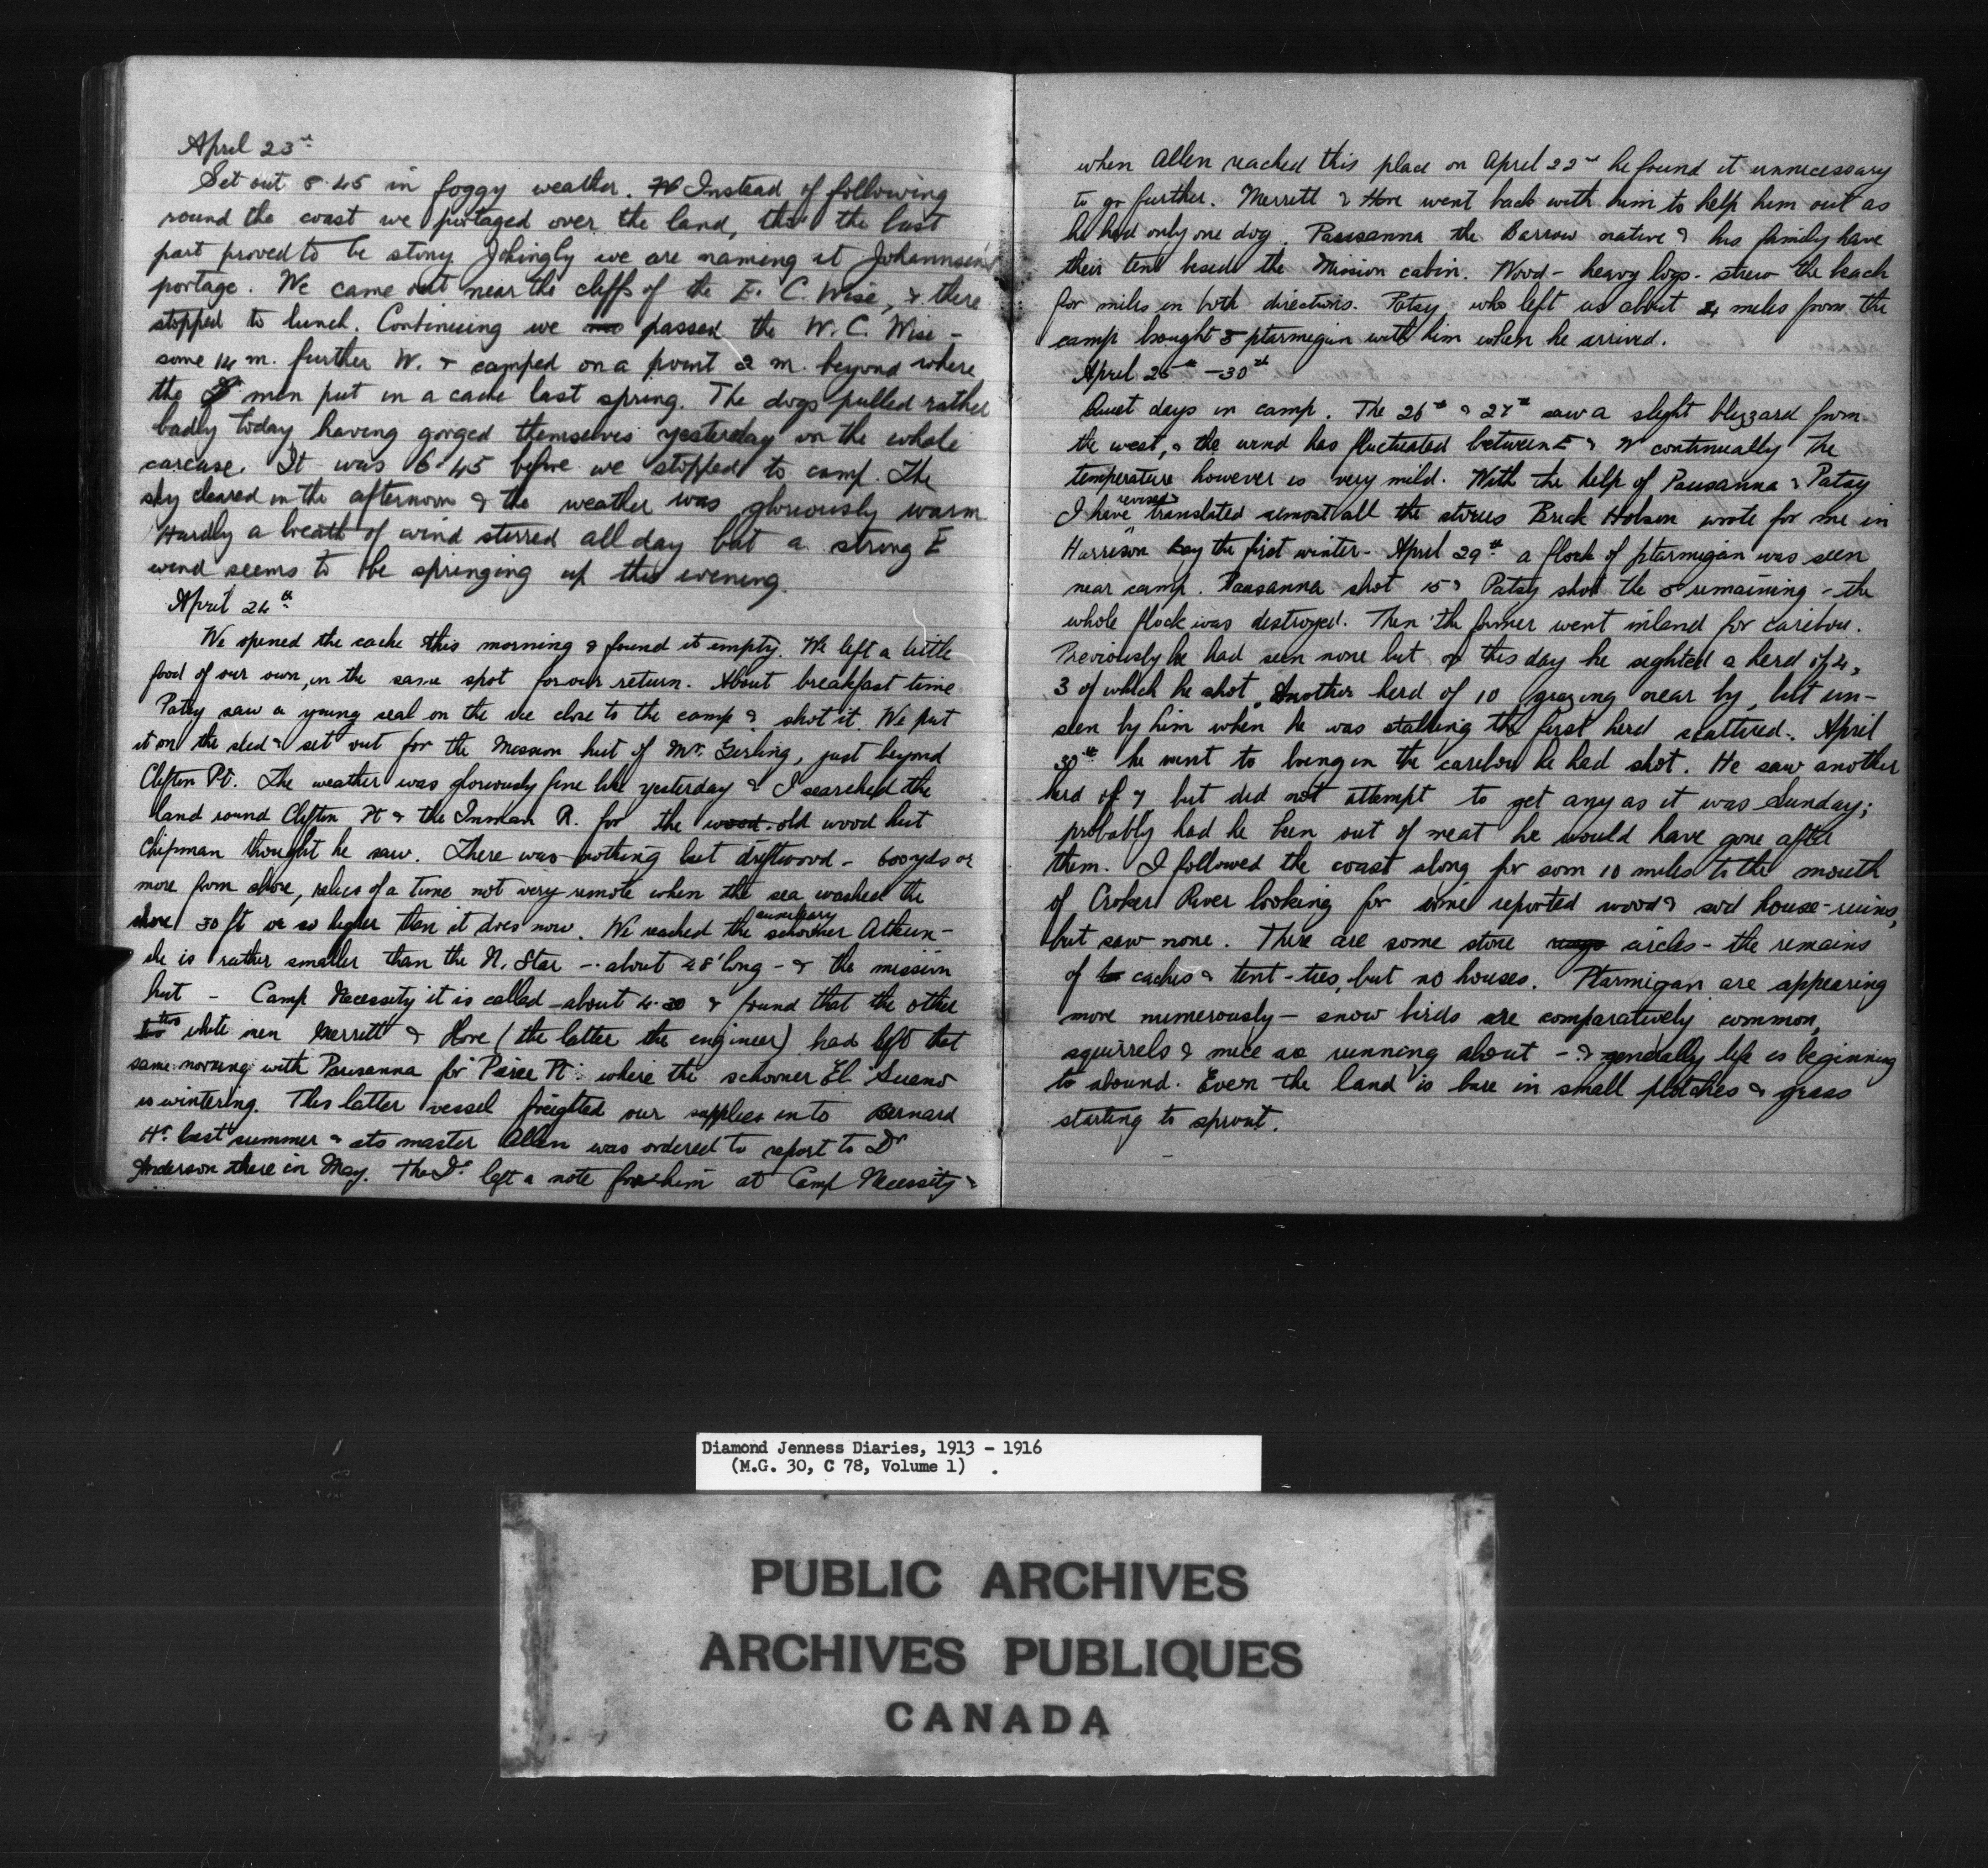 April 23rd
Set out 8.45 in foggy weather. Instead of following
round the coast we portaged over the land, tho' the last
part proved to be stony. Jokingly we are naming it Johannsen's
portage. We came out near the cliffs of the E. C. Wise, & there
stopped to lunch. Continuing we passed the W. C. Wise –
some 14 m. further W. & camped on a point 2 m. beyond where
the men put in a cache last spring. The dogs pulled rather
badly today having gorged themselves yesterday on the whale
carcase. It was 6.45 before we stopped to camp. The
sky cleared in the afternoon & the weather was gloriously warm
Hardly a breath of wind stirred all day but a strong E
wind seems to be springing up this evening.
April 24th
We opened the cache this morning & found it empty. We left a little
food of our own, in the same spot for our return. About breakfast time
Patsy saw a young seal on the ice close to the camp & shot it. We put
it on the sled & set out for the Mission hut of Mr. Girling, just beyond
Clifton Pt. The weather was gloriously fine like yesterday & I searched the
land round Clifton Pt & the Inman R. for the wood old wood hut
Chipman thought he saw. There was nothing but driftwood – 600 yds or
more from shore, relics of a time not very remote when the sea washed the
shore 30 ft or so higher than it does now. We reached the auxiliary schooner Atkun –
she is rather smaller than the N. Star – about 28' long – & the mission
hut – Camp Necessity it is called – about 4.30 & found that the other
two white men Merritt & Hore (the latter the engineer) had left that
same morning with Pausanna for Pierce Pt. where the schooner El Sueno
is wintering. This latter vessel freighted our supplies into Bernard
Hr. last summer & its master Allen was ordered to report to Dr
Anderson there in May. The Dr. left a note for him at Camp Necessity &
when Allen reached this place on April 22nd he found it unnecessary
to go further. Merritt & Hore went back with him to help him out as
he had only one dog. Pausanna the Barrow native & his family have
their tent beside the Mission cabin. Wood – heavy logs – strew the beach
for miles in both directions. Patsy, who left us about 4 miles from the
camp brought 5 ptarmigan with him when he arrived.
April 25th – 30th
Quiet days in camp. The 26th & 27th saw a slight blizzard from
the west, & the wind has fluctuated between E & W continually The
temperature however is very mild. With the help of Pausanna & Patsy
I have revised & translated almost all the stories Brick Hobson wrote for me in
Harrison bay the first winter. April 29th a flock of ptarmigan was seen
near camp. Pausanna shot 15 & Patsy shot the 5 remaining – the
whole flock was destroyed. Then the former went inland for caribou.
Previously he had seen none but on this day he sighted a herd of 4,
3 of which he shot. Another herd of 10 grazing near by, but un-
seen by him when he was stalking the first herd scattered. April
30th he went to bring in the caribou he had shot. He saw another
herd of 7 but did not attempt to get any as it was Sunday;
probably had he been out of meat he would have gone after
them. I followed the coast along for som 10 miles to the mouth
of Croker River looking for some reported wood & sod house-ruins,
but saw none. There are some stone rings circles – the remains
of caches & tent-ties, but no houses. Ptarmigan are appearing
more numerously – snow birds are comparatively common,
squirrels & mice are running about – & generally life is beginning
to abound. Even the land is bare in small patches & grass
starting to sprout.
Diamond Jenness Diaries, 1913 - 1916
(M.G. 30, C 78, Volume 1)
PUBLIC ARCHIVES
ARCHIVES PUBLIQUES
CANADA